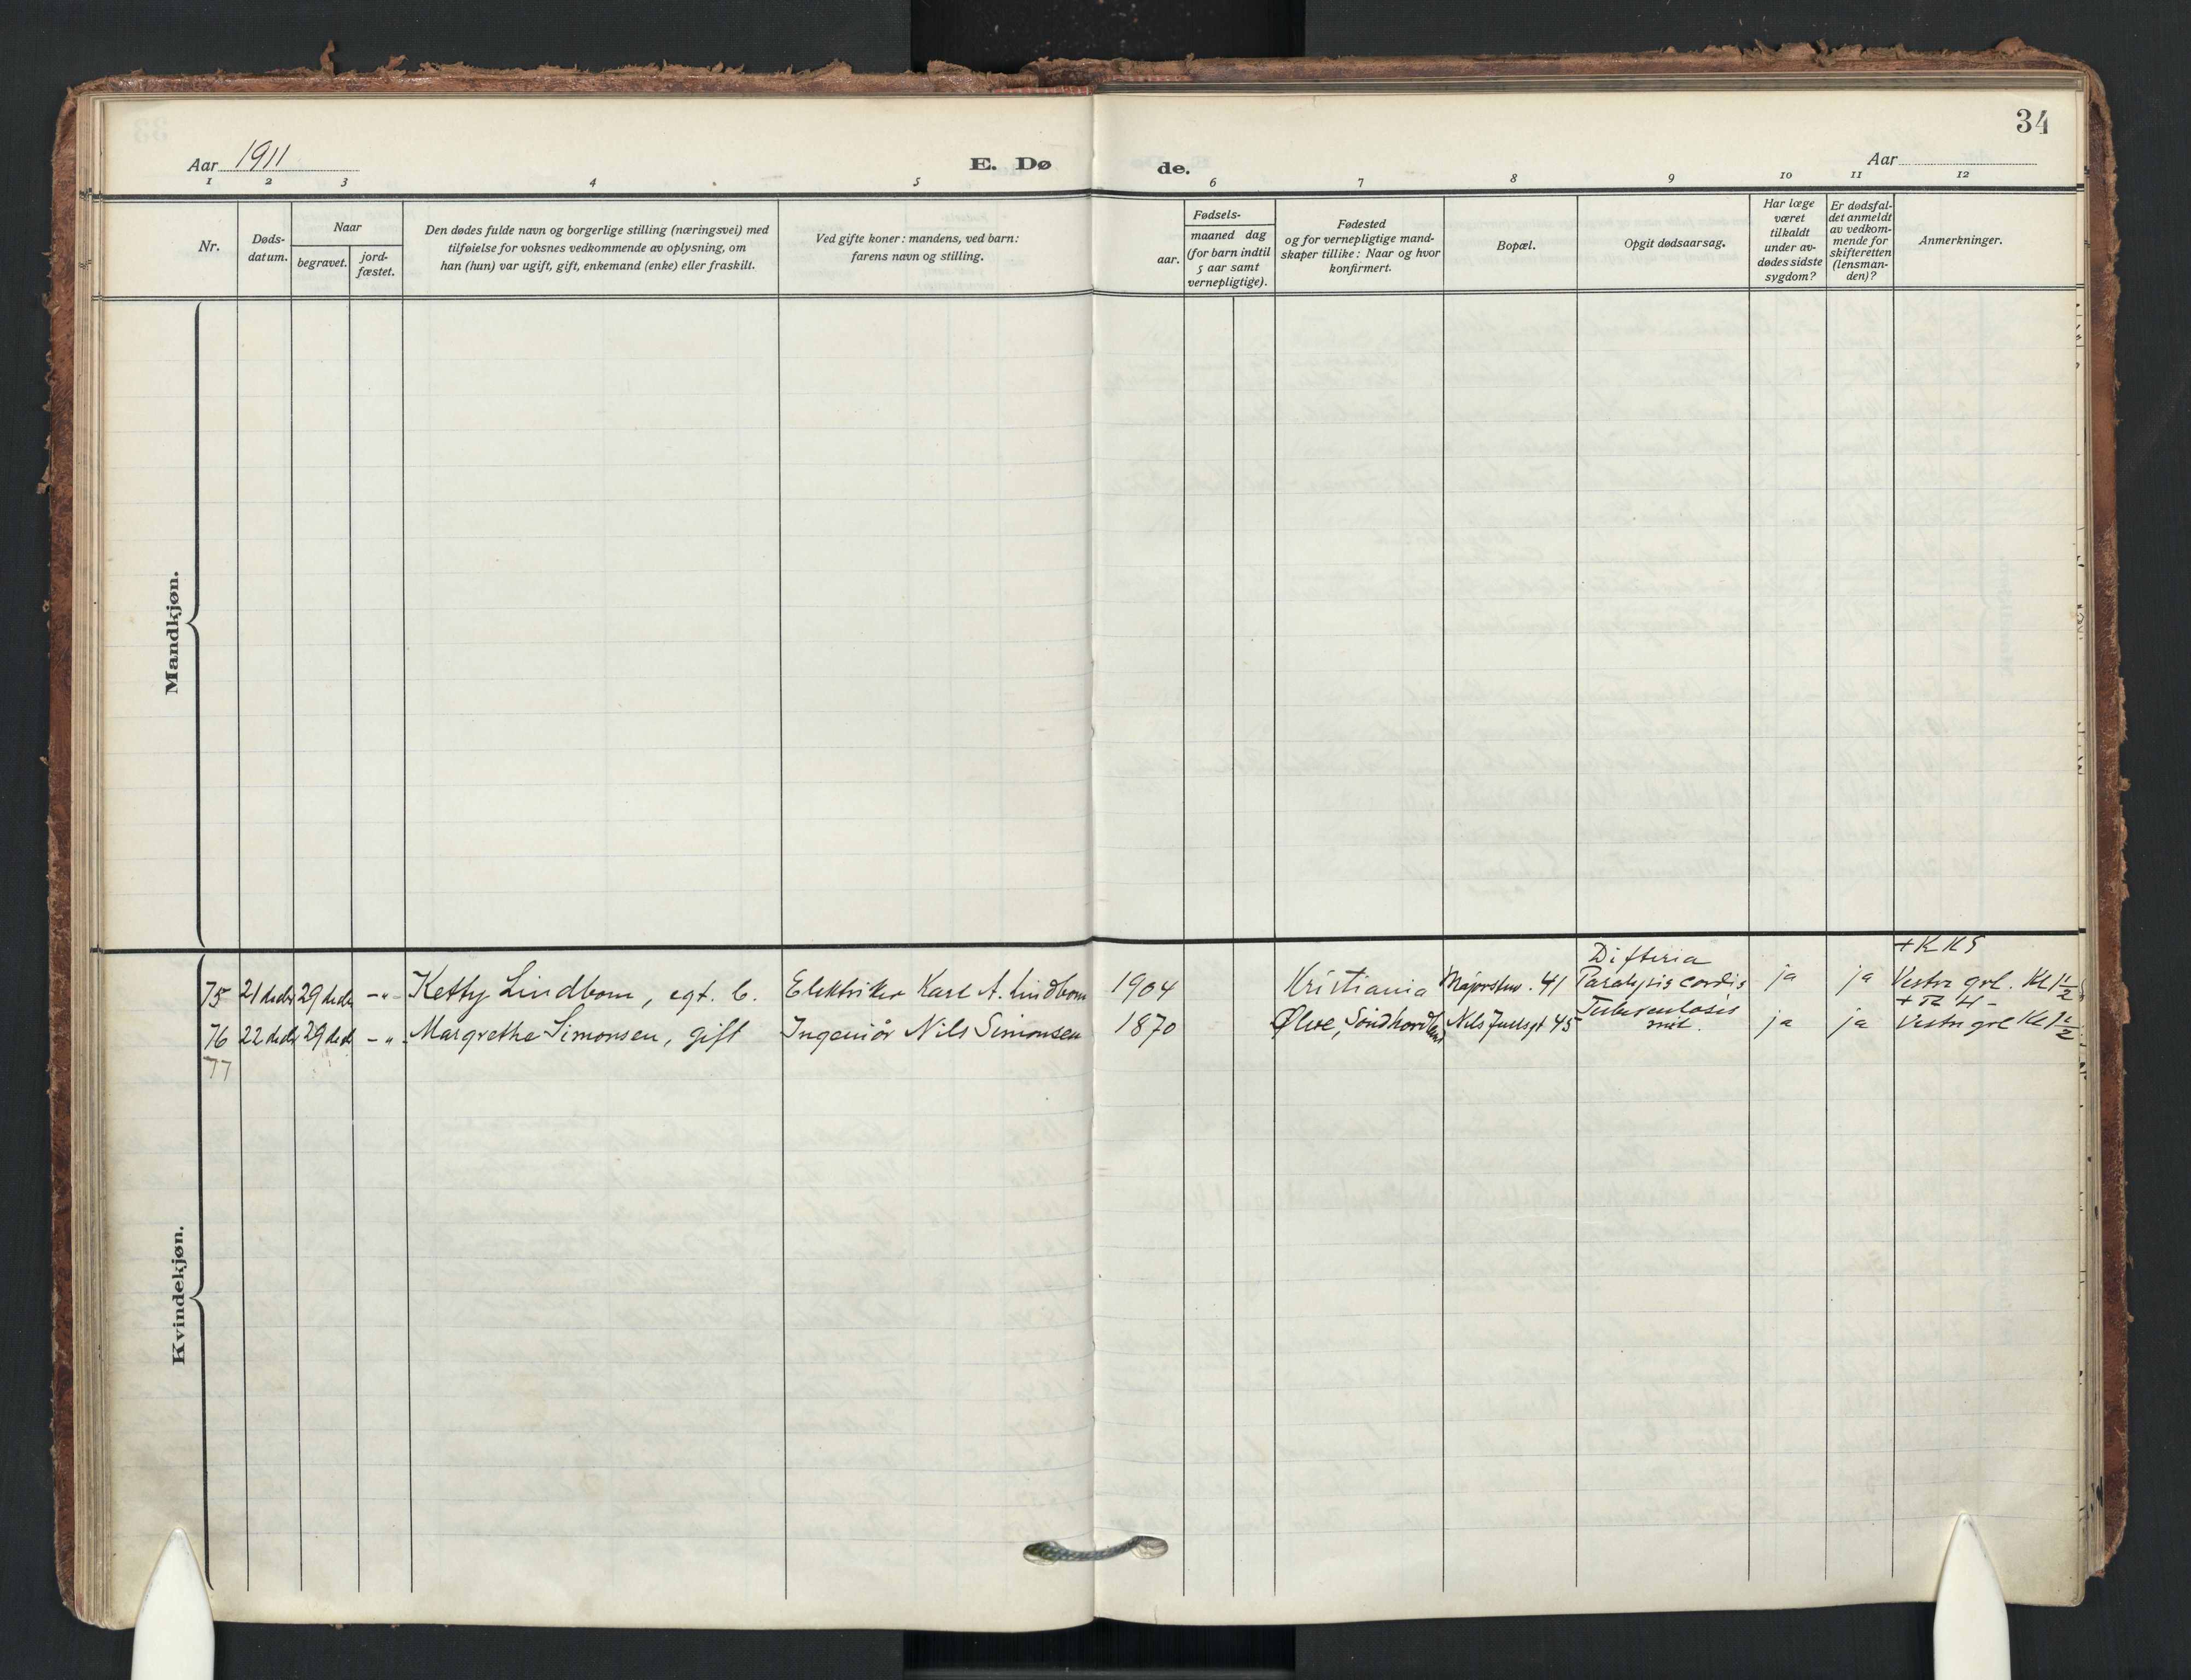 34
Aar 1911
E. Dø
de.
Aar
1 2 3 4 5 6 7 8 9 10 11 12
Nr.
Døds-
datum.
Naar
begravet.
jord-
fæstet.
Den dødes fulde navn og borgerlige stilling (næringsvei) med
tilføielse for voksnes vedkommende av oplysning, om
han (hun) var ugift, gift, enkemand (enke) eller fraskilt.
Ved gifte koner: mandens, ved barn:
farens navn og stilling.
Fødsels-
aar.
maaned dag
(for barn indtil
5 aar samt
vernepligtige).
Fødested
og for vernepligtige mand-
skaper tillike: Naar og hvor
konfirmert.
Bopæl.
Opgit dødsaarsag.
Har læge
været
tilkaldt
under av-
dødes sidste
sygdom?
Er dødsfal-
det anmeldt
av vedkom-
mende for
skifteretten
(lensman-
den)?
Anmerkninger.
Mandkjøn.
Kvindekjøn.
Difteria + K K S
75 21 decbr 29 decb -"- Ketty Lindbom, egt. b. Elektriker Karl A. Lindbom 1904 Kristiania Majorstuv. 41 Paralysis cordis ja ja Vestre grl. Kl 1 1/2
Tuberculosis
76 22 decb 29 decb -"- Margrethe Simonsen, gift Ingeniör Nils Simonsen 1870 Ølve, Söndhordland Nils Juelsgt 45 mil. ja ja Vestre grl Kl 1 1/2
77